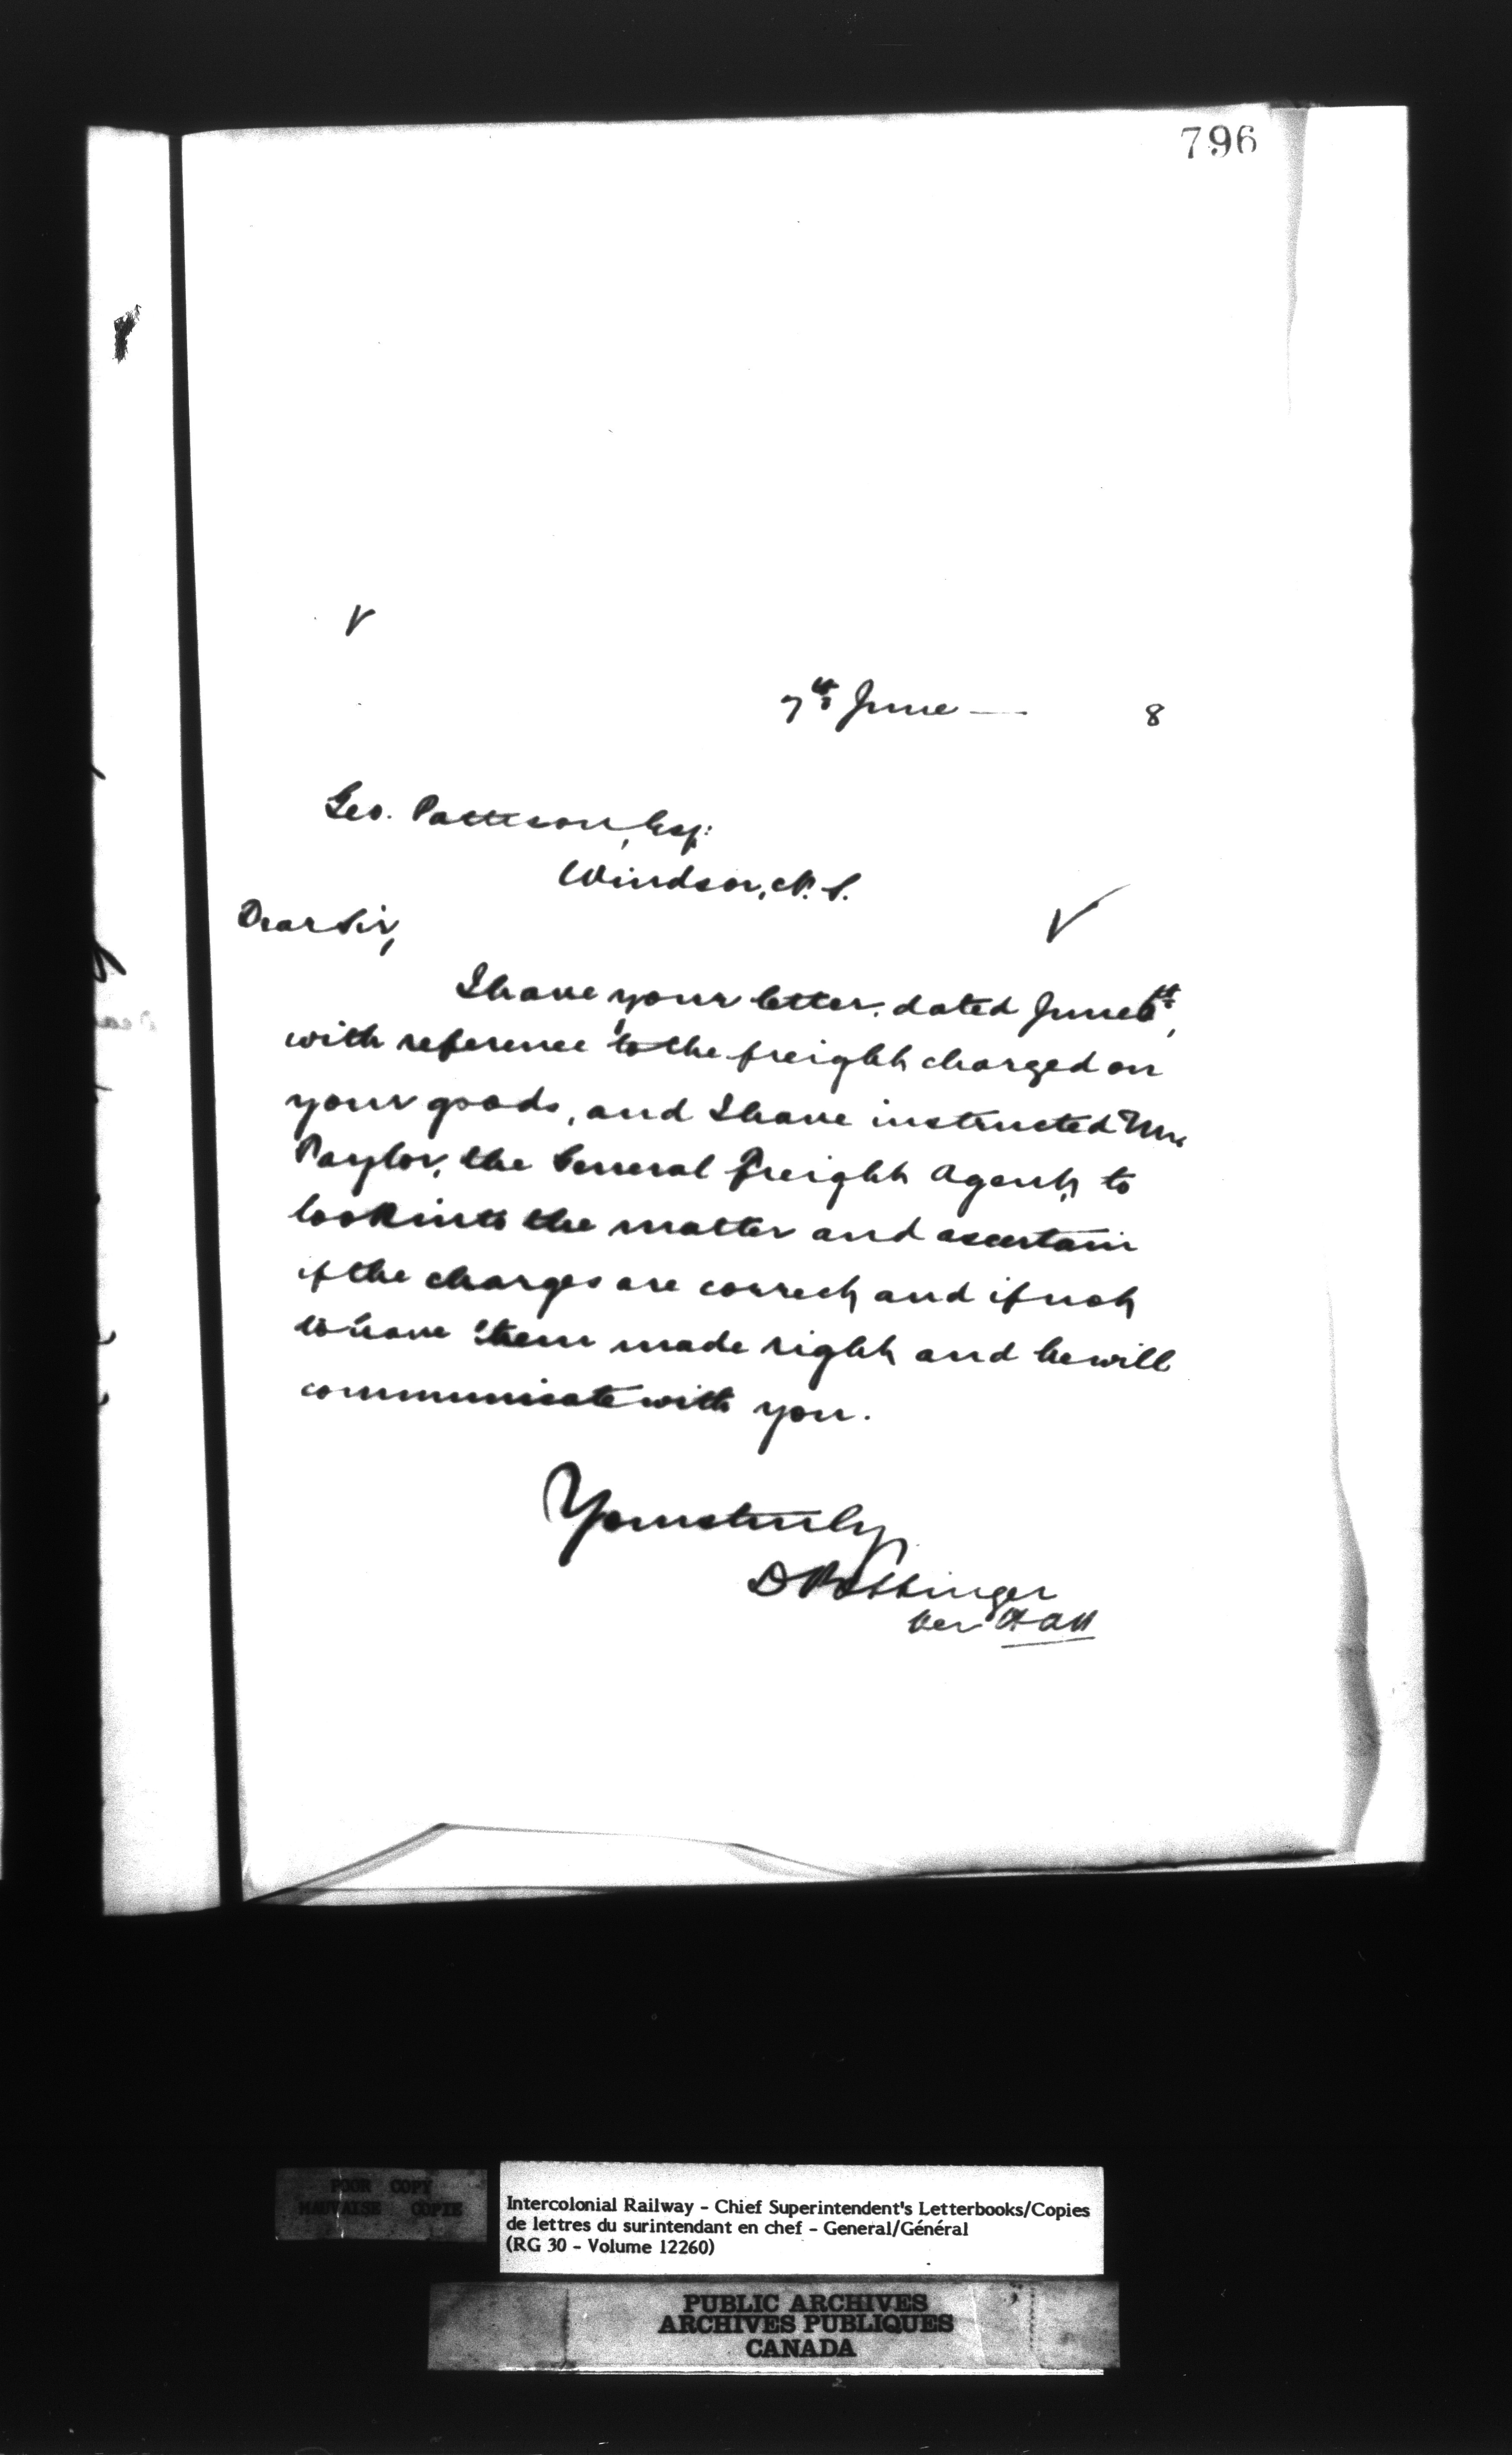 796
7th June — 8
Geo. Pattison, Esq:
Windsor, N.S.
Dear Sir,
I have your letter, dated June 6th,
with reference to the freight charged on
your goods, and I have instructed Mr.
Taylor, the General Freight Agent, to
look into the matter and ascertain
if the charges are correct, and if not
to have them made right and he will
communicate with you.
Yours truly,
D Pottinger
per
POOR COPY
MAUVAISE COPIE
Intercolonial Railway - Chief Superintendent's Letterbooks/Copies
de lettres du surintendant en chef - General/Général
(RG 30 - Volume 12260)
PUBLIC ARCHIVES
ARCHIVES PUBLIQUES
CANADA